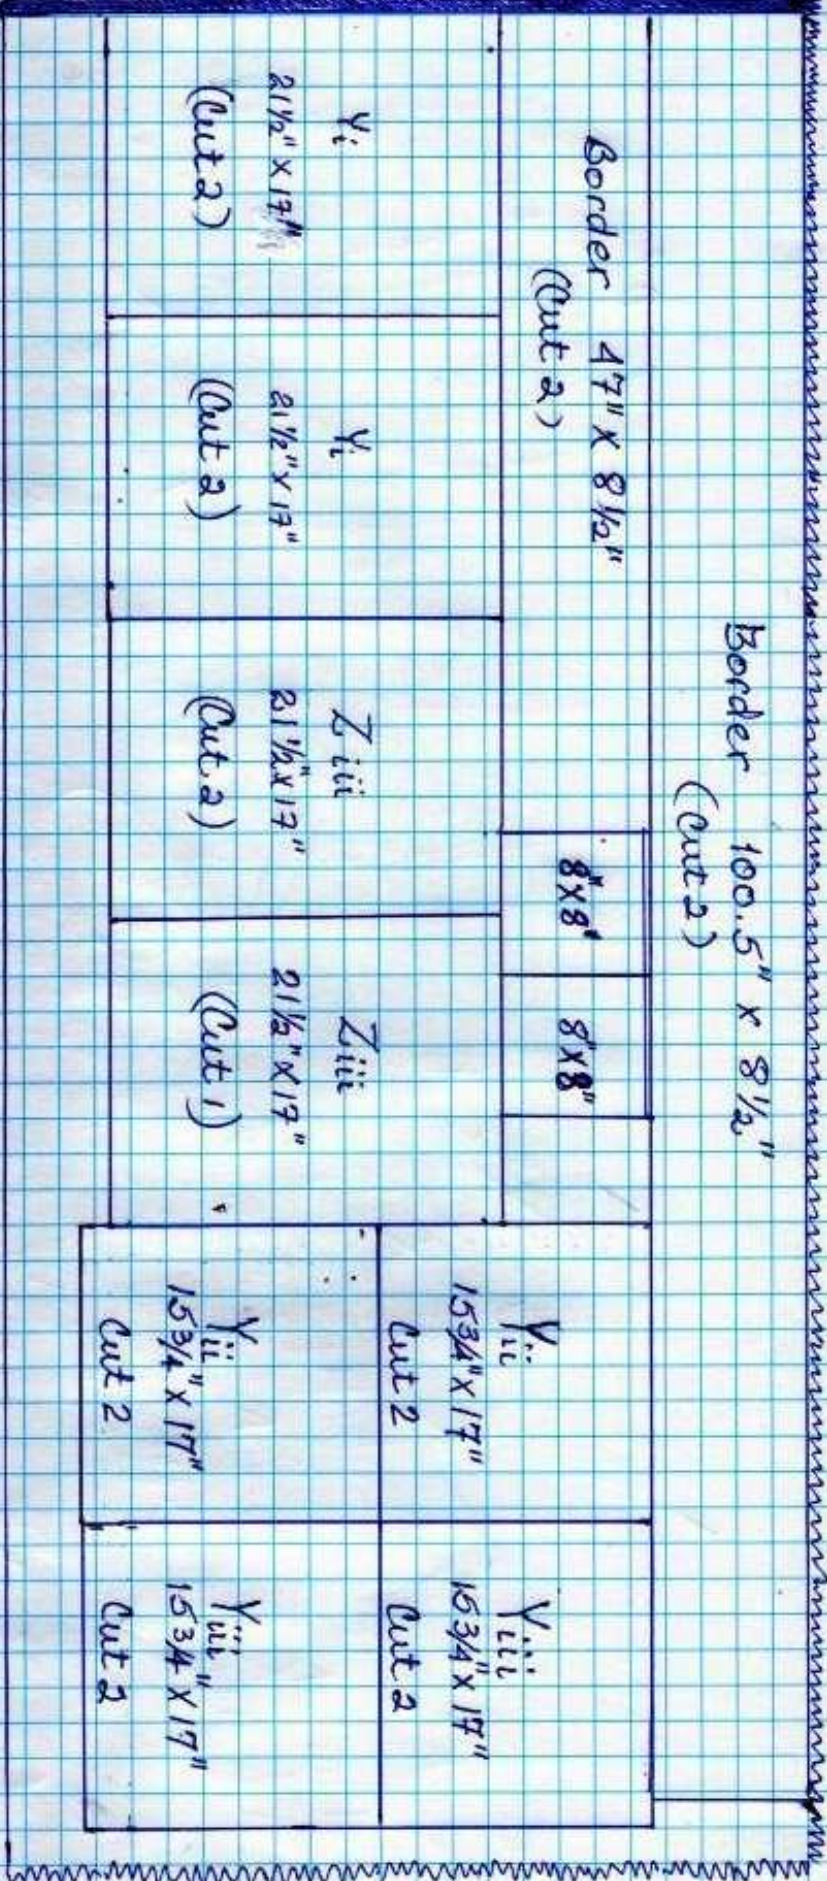 Border 100.5" x 8 1/2"
(Cut 2)
Border 47" x 8 1/2"
(Cut 2)
8"x8"
8"x8"
Yi
21 1/2" x 17"
(Cut 2)
Yi
21 1/2" x 17"
(Cut 2)
Ziii
21 1/2" x 17"
(Cut 2)
Ziii
21 1/2" x 17"
(Cut 1)
Yii
15 3/4" x 17"
Cut 2
Yiii
15 3/4" x 17"
Cut 2
Yii
15 3/4" x 17"
Cut 2
Yiii
15 3/4" x 17"
Cut 2